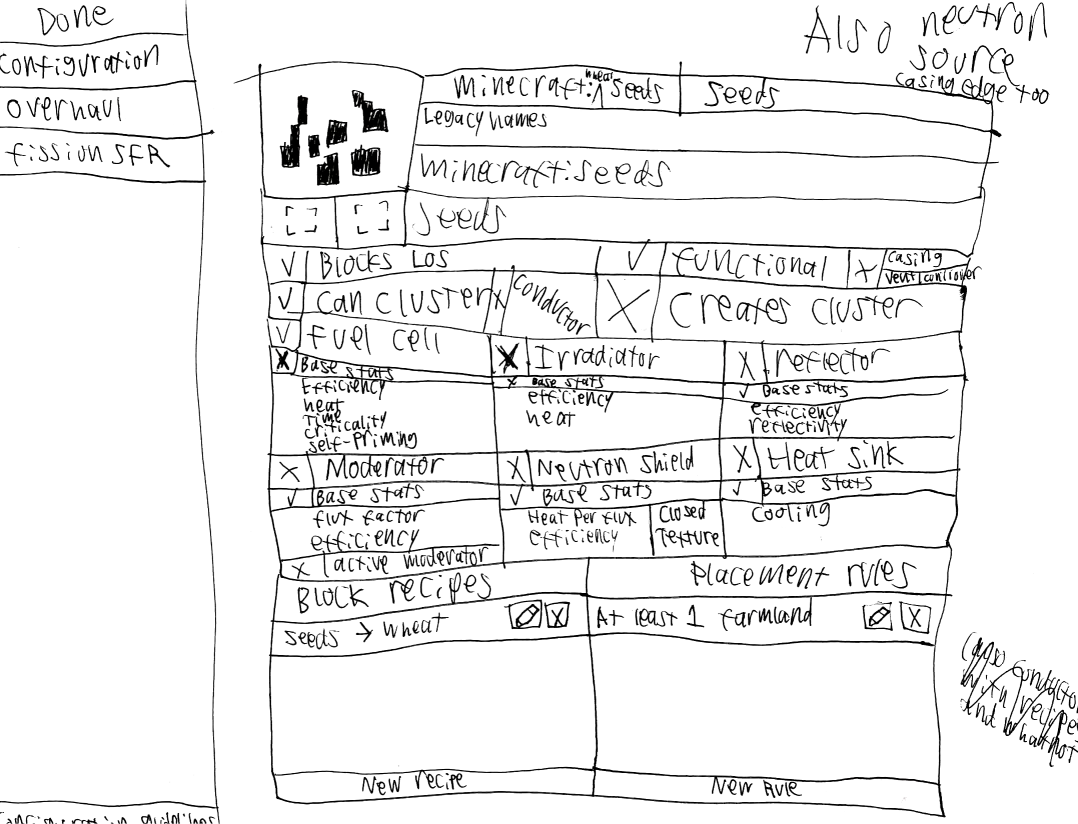 Done
Configuration
overhaul
fissionSFR
Also neutron
source
casing edge too
minecraft:wheat_seeds
seeds
Legacy names
minecraft:seeds
seeds
√ Blocks LOS
√ functional
X casing
vent/controller
√ can cluster
X conductor
X creates cluster
√ fuel cell
X Base stats
Efficiency
heat
Time
criticality
self-priming
X Irradiator
X Base stats
efficiency
heat
X reflector
√ Base stats
efficiency
reflectivity
X Moderator
√ Base stats
flux factor
efficiency
X active moderator
X Neutron shield
√ Base stats
Heat per flux
efficiency
Closed
Texture
X Heat sink
√ Base stats
cooling
Block recipes
seeds → wheat
X
New recipe
Placement rules
At least 1 farmland
X
New Rule
(also conductor
with recipes
and whatnot
configuration guidelines